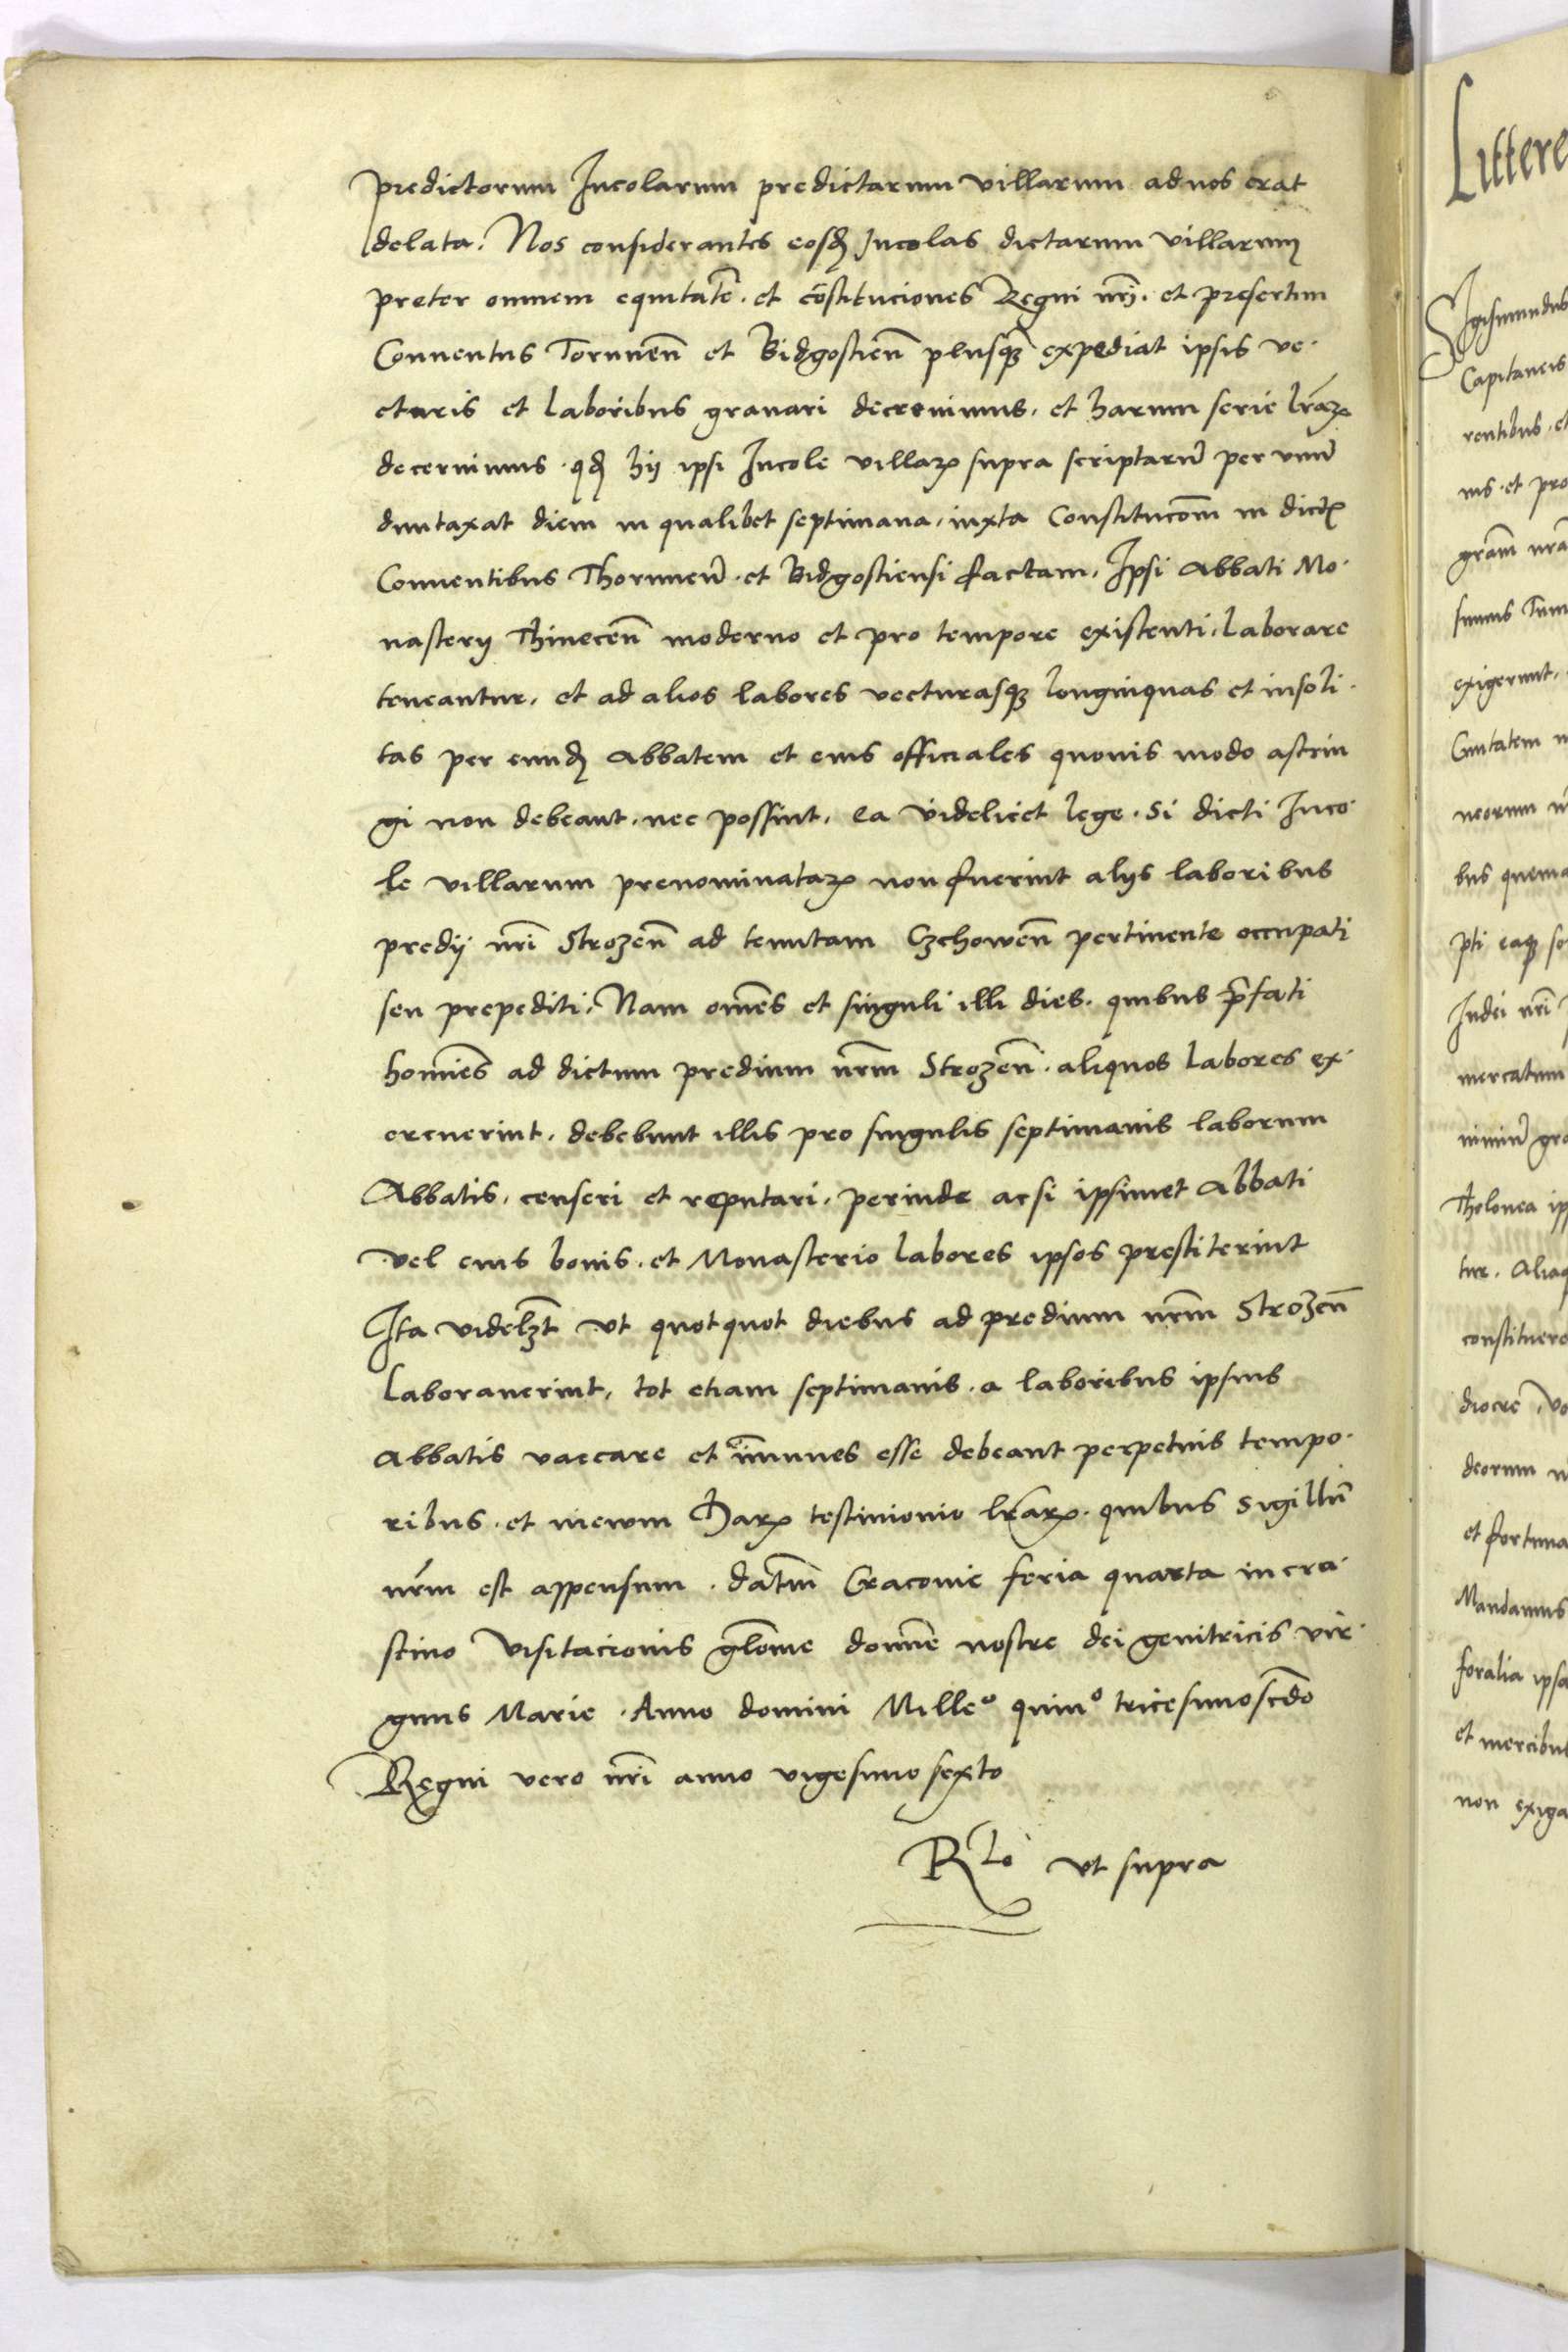 predictorum Incolarum predictarum villarum ad nos erat
delata. Nos considerantes eosdꝫ Incolas dictarum villarum
preter omnem equitatē. et cōstituciones Regni nr̄i. et presertim
Conuentus Torunen̄ et Bidgostien̄ plusqꝫ expediat ipsis ve-
cturis et laboribus grauari decreuimus. et harum serie lr̄aꝝ
decernimus. qdꝫ hij ipsi Incole villaꝝ supra scriptarū per vnū
duntaxat diem in qualibet septimana, iuxta Constitucōm in dictꝭ
Conuentibus Thorunen̄. et Bidgostiensi factam. Ipsi Abbati Mo-
nasterij Thinecen̄ moderno et pro tempore existenti. laborare
teneantur. et ad alios labores vecturasqꝫ longinquas et insoli-
tas per eundꝫ Abbatem et eius officiales quouis modo astrin
gi non debeant. nec possint. ea videlicet lege. Si dicti Inco-
le villarum prenominataꝝ non fuerint alijs laboribus
predij nr̄i Strozen̄ ad tenutam Czchowen̄ pertinente occupati
seu prepediti. Nam om̄es et singuli illi dies. quibus p̄fati
homīes ad dictum predium nr̄m Strozen̄. aliquos labores ex-
ercuerint. debebunt illis pro singulis septimanis laborum
Abbatis. censeri et reputari. perinde acsi ipsimet Abbati
vel eius bonis. et Monasterio labores ipsos prestiterint
Ita videlꝫt vt quotquot diebus ad predium nr̄m Strozen̄
laborauerint, tot etiam septimanis. a laboribus ipsius
Abbatis vaccare et im̄unes esse debeant perpetuis tempo-
ribus. et in ewm Haꝝ testimonio lr̄arꝝ. quibus Sigillū
nr̄m est appensum. datm̄ Cracovie feria quarta in cra-
stino Visitacionis gl̄ome domne nostre dei genitricis vir-
ginis Marie. Anno domini Milleº quinº tricesimo scd̄o
Regni vero nr̄i anno vigesimo sexto
Rlo vt supra
Littere
Sigismundus
Capitaneis
rentibus. et
nis. et pro
gram̄ nrā
sumus
exigerunt.
neorum
bus quema
pti eaqꝫ
Iudei nr̄i
mercatum
Tholonea ip
tur. Aliaq
constituere
deorum
et fortuna
Mandamus
foralia ipsa
et mercibus
non exiga